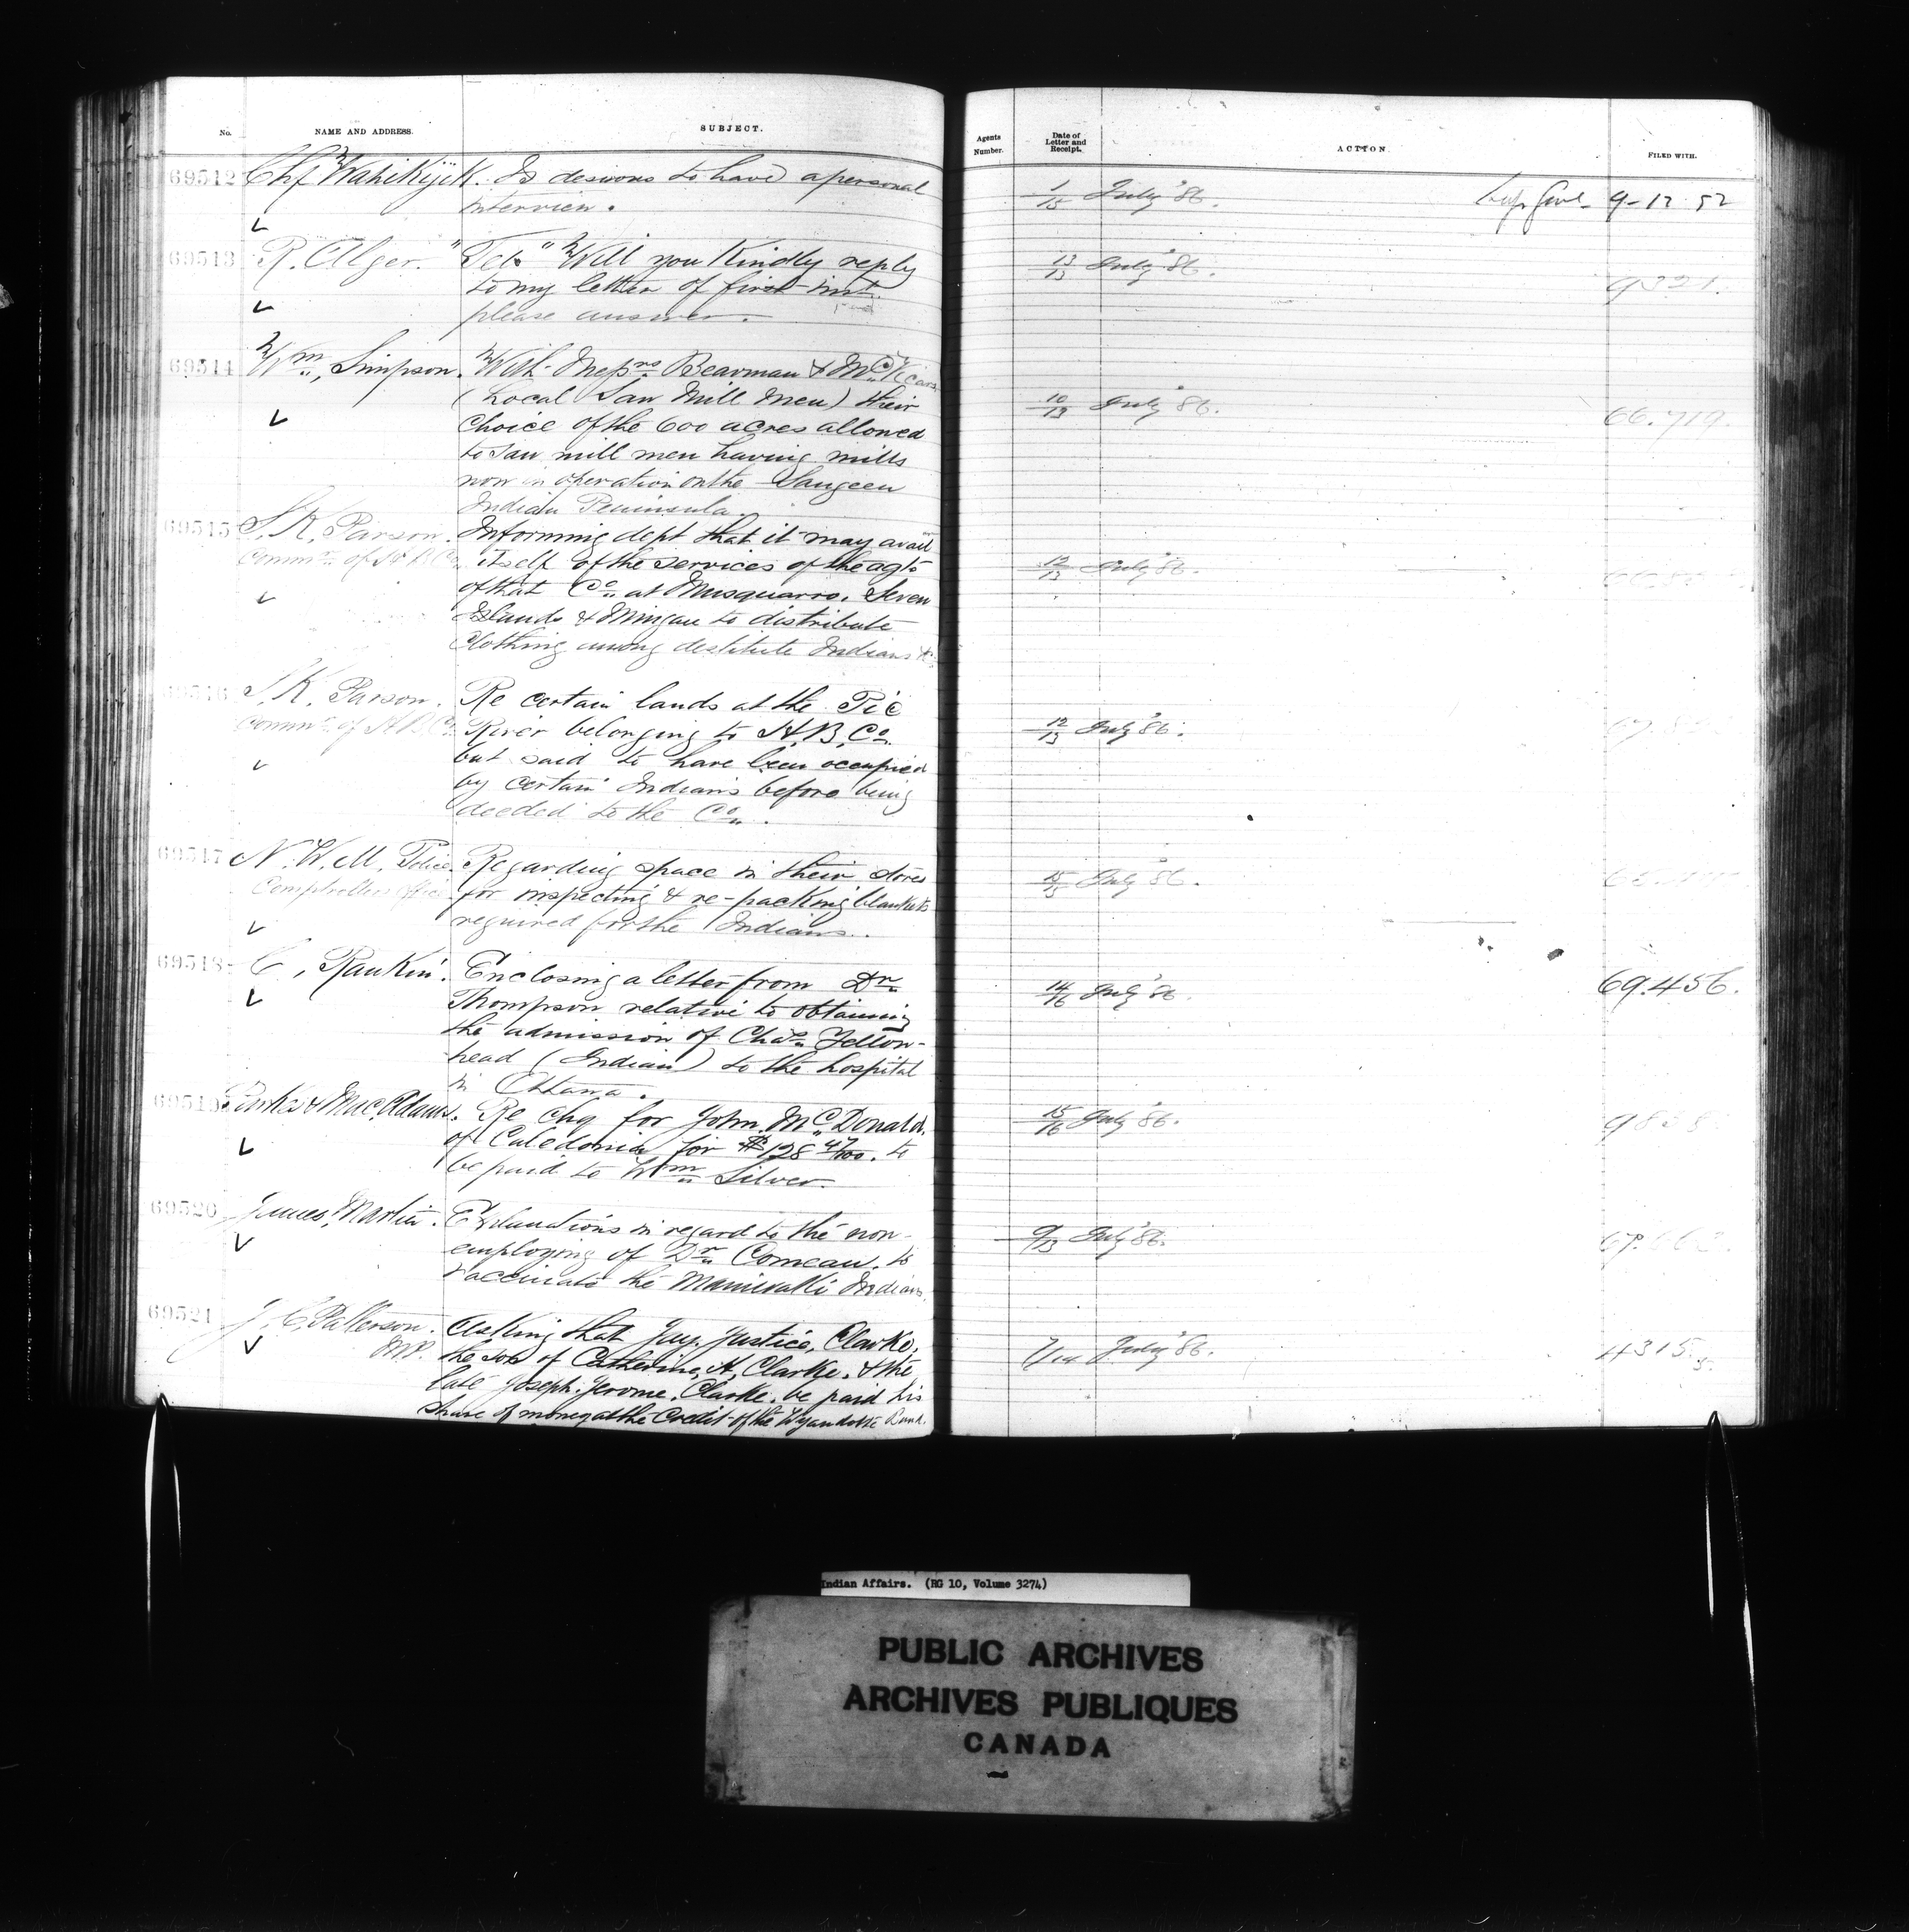 No. NAME AND ADDRESS. SUBJECT. Agents Number. Date of Letter and Receipt. ACTION. FILED WITH.
69512 Chf WahiKijiK. Is desirous to have a personal 1/15 July '86. 9-12-52
interview.
69513 R. Alger. "Tel" Will you Kindly reply 13/13 July '86. 9321.
to my letter of first inst.
please answer.
69514 Wm, Simpson. With Messrs Bearman & Mc
(Local Saw Mill Men) their 10/13 July '86. 66.719.
choice of the 600 acres allowed
to saw mill men having mills
now in operation on the Saugeen
Indian Peninsula.
69515 S. K. Parson. Informing dept that it may avail
Commr. of H B Co. itself of the services of the agts 12/13 July '86.
of that Co. at Musquarro, Seven
Islands & Mingan to distribute
Clothing among destitute Indians &c
69516 S. K. Parson. Re certain lands at the Pic
Commr. of H.B.Co. River belonging to H.B. Co. 12/13 July '86.
but said to have been occupied
by certain Indians before being
deeded to the Co.
69517 N. W. M. Police. Regarding space in their stores 15/15 July '86.
Comptrollers Office for inspecting & re-packing blankets
required for the Indians.
69518 C, RanKin. Enclosing a letter from Dr. 14/16 July '86. 69.456.
Thompson relative to obtaining
the admission of Chas. Yellow-
head (Indian) to the hospital
in Ottawa.
69519 & MacAdams. Re chq for John McDonald. 15/16 July '86.
of Caledonia for $128 47/100. to
be paid to Wm Silver.
69520 James, Martin. Explanations in regard to the non- 9/13 July '86.
employing of Dr. Comeau. to
vaccinate the ManiwaKi Indians.
69521 J. C. Patterson. Asking that Jay. Justice, Clarke, 7/14 July '86. 4315.
M.P. the son of Catherine, A, Clarke. & the
late Joseph. Jerome. Clarke. be paid his
share of money at the Credit of the Wyandotte Band.
Indian Affairs. (RG 10, Volume 3274)
PUBLIC ARCHIVES
ARCHIVES PUBLIQUES
CANADA